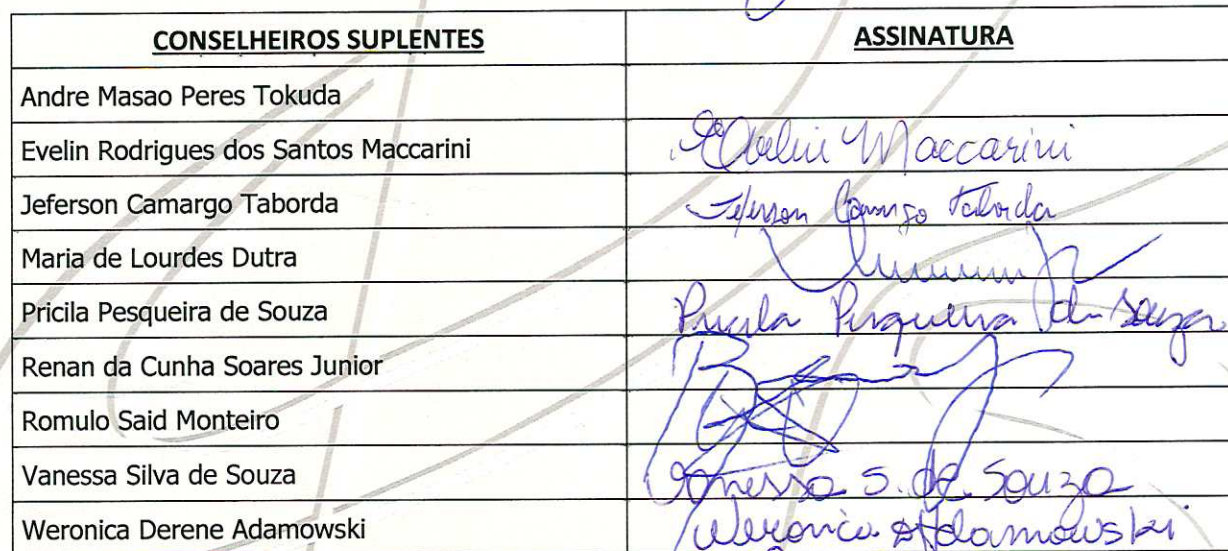 CONSELHEIROS SUPLENTES ASSINATURA
Andre Masao Peres Tokuda
Evelin Rodrigues dos Santos Maccarini Evelin Maccarini
Jeferson Camargo Taborda Jeferson Camargo Taborda
Maria de Lourdes Dutra
Pricila Pesqueira de Souza Pricila Pesqueira de Souza
Renan da Cunha Soares Junior
Romulo Said Monteiro
Vanessa Silva de Souza Vanessa S. de Souza
Weronica Derene Adamowski Weronica Adamowski